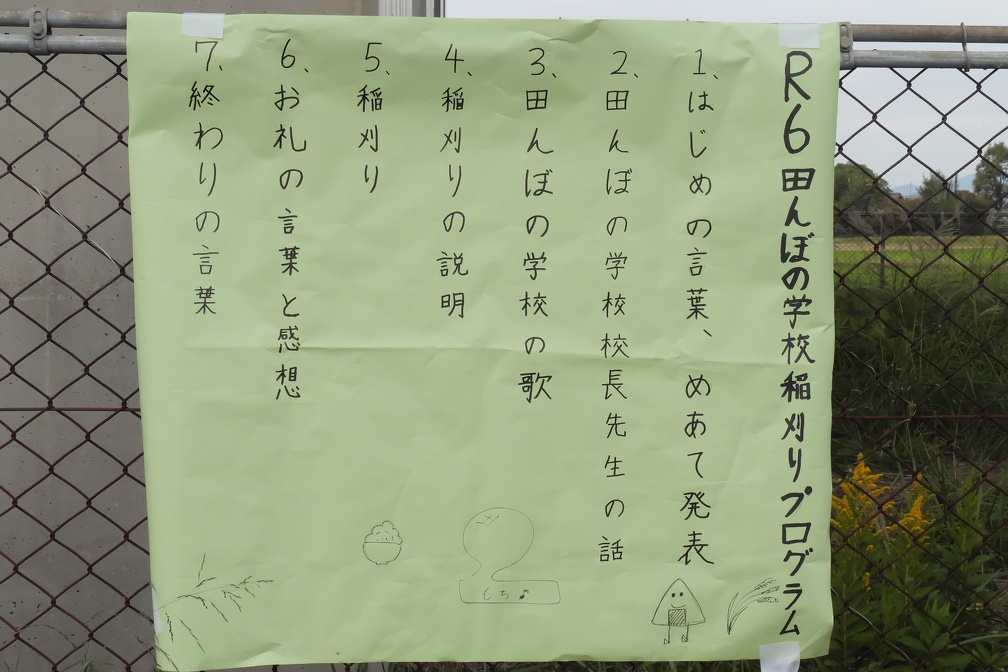 R6田んぼの学校稲刈りプログラム
1、はじめの言葉、めあて発表
2、田んぼの学校校長先生の話
3、田んぼの学校の歌
4、稲刈りの説明
5、稲刈り
6、お礼の言葉と感想
7、終わりの言葉
もち♪